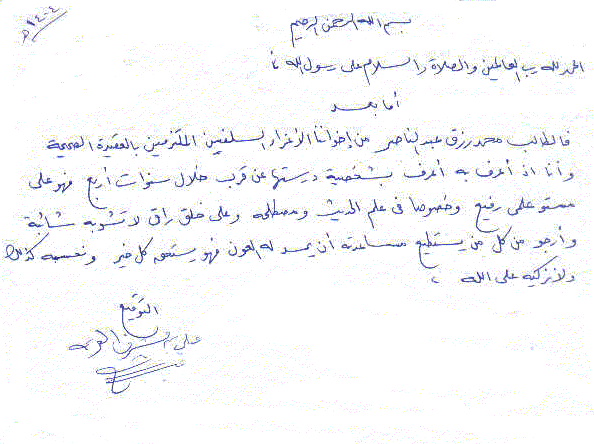 ١٤٠٤ هـ
بسم الله الرحمن الرحيم
الحمد لله رب العالمين والصلاة والسلام على رسول الله
أما بعد
فالطالب محمد رزق عبد الناصر من إخواننا الأعزاء السلفيين الملتزمين بالعقيدة الصحيحة
وأنا اذ أعرف به أعرف بشخصية درستها عن قرب خلال سنوات أربع فهو على
مستو علمي رفيع وخصوصا في علم الحديث ومصطلحه وعلى خلق راق لا تشوبه شائبة
وأرجو من كل من يستطيع مساعدته أن يمد له العون فهو يستحق كل خير ونحسبه كذلك
ولا نزكيه على الله ،
التوقيع
علي